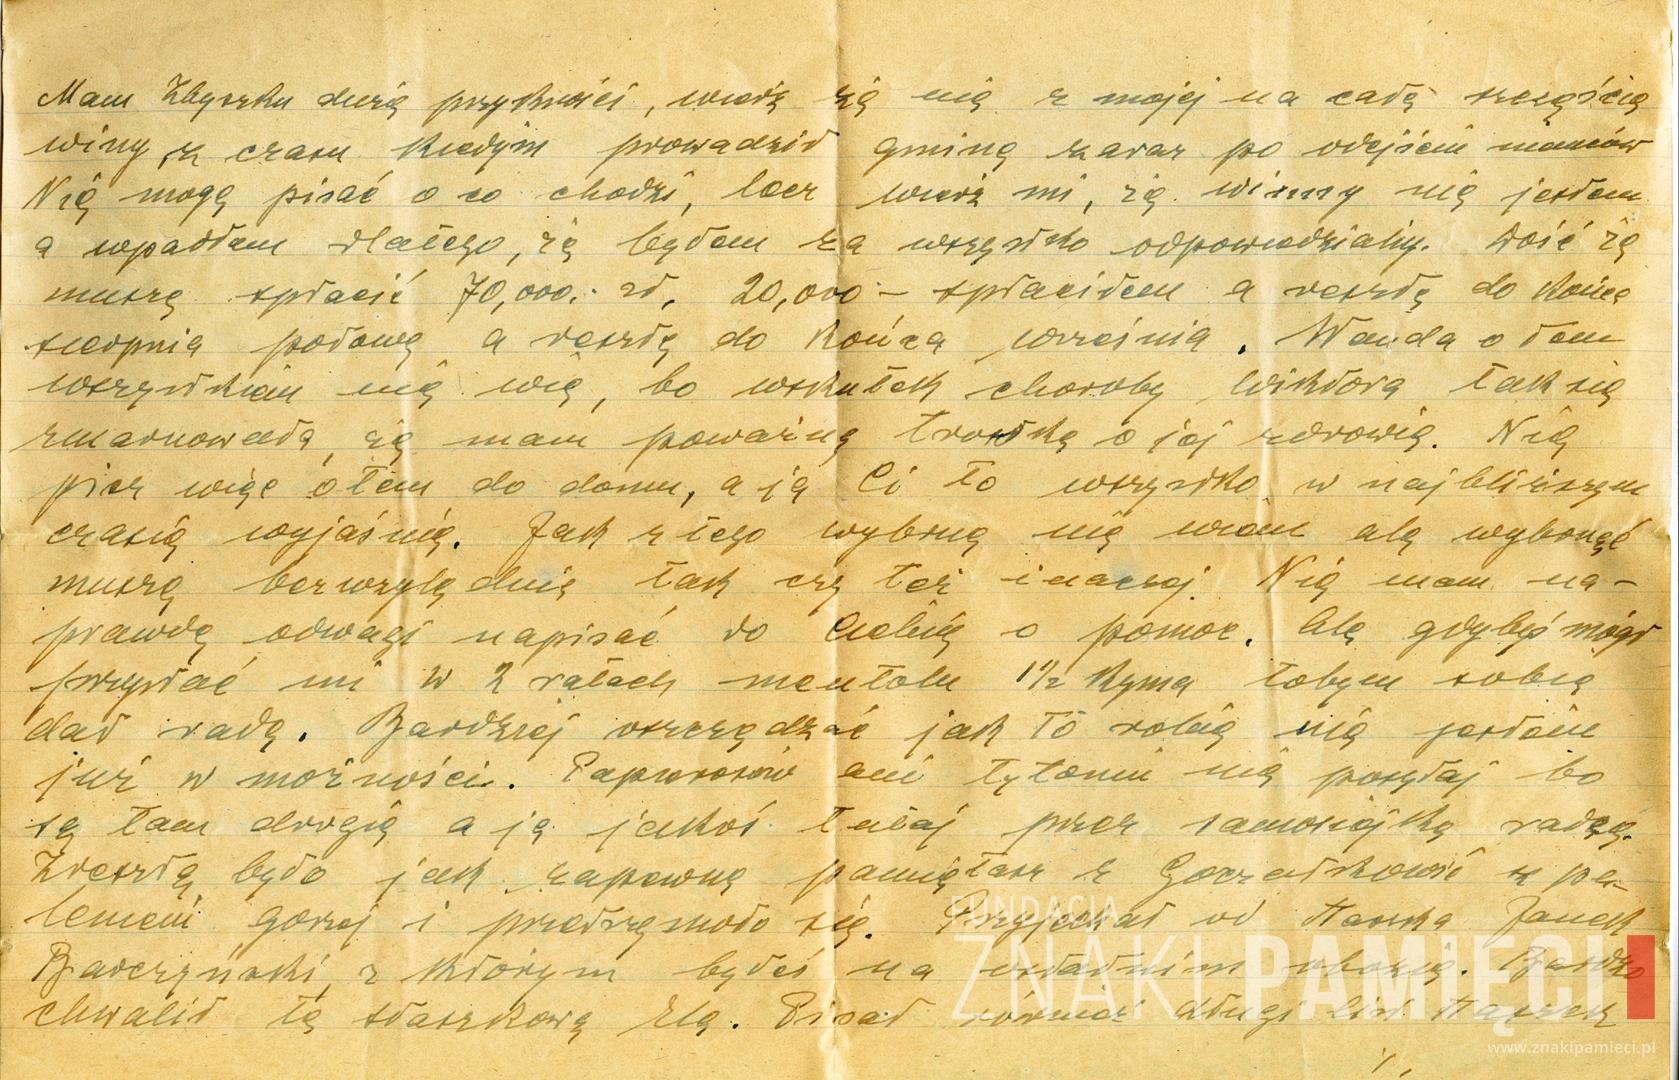 Mam Zbyszku dużę przykrości, wierz żę nię z mojej na całę szczęścię
winy, z czasu kiedym prowadził gminę zaraz po odejściu niemców
Nię mogę pisać o co chodzi, lecz wierz mi, żę winny nię jestem
a wpadłem dlatego, żę byłem za wszystko odpowiedzialny. Dość żę
muszę spłacić 70,000.- zł. 20,000 - spłaciłem a resztę do końca
sierpnia połowę a resztę do końca września. Wanda o tem
wszystkiem nię wię, bo wskutek choroby Wiktora tak się
zmarnowała, żę mam poważną troskę o jej zdrowię. Nię
pisz więc o tem do domu, a ja Ci to wszystko w najbliższym
czasię wyjaśnię. Jak z tego wybrnę nię wiem alę wybrnąć
muszę bezwzględnię tak czy też inaczej. Nię mam na-
prawdę odwagi napisać do Ciebię o pomoc. Alę gdybyś mógł
przysłać mi w 2 ratach mentolu 1 1/2 kgma tobym sobię
dał radę. Bardziej oszczędzać jak to robię nię jestem
już w możności. Papierosów ani tytoniu nię posyłaj bo
są tam drogię a ja jakoś tutaj przez samosiejkę radzę.
Zresztą było jak zapewnę pamiętasz z Gorzałkowić z pa-
leniem gorzej i przetrzymało się. Przyjechał od Staszka Janek
Barczyński, z którym byłeś na ostatnim obozię. Bardzo
chwalił tę staszkową Elę. Pisał również długi list Staszek
./.
FUNDACJA
ZNAKI PAMIĘCI
www.znakipamieci.pl